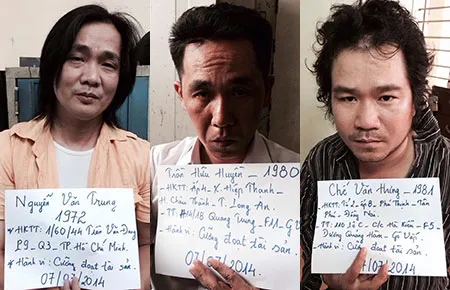 Nguyễn Văn Trung
1972
* HKTT: 1/60/44 Trần Văn Đang
P9 - Q3 - TP. Hồ Chí Minh.
* Hành vi: Cưỡng đoạt tài sản.
07/07/2014
Trần Hữu Huyền - 1980
- HKTT: Ấp 4 - X. Hiệp Thạnh -
H. Châu Thành - T. Long An.
- TT: Quang Trung - F11 - GV
- Hành vi: Cưỡng đoạt tài sản.
07/07/2014
Chế Văn Hưng - 1981
- HKTT: Phú Thạnh - Tân
Phú - Đồng Nai.
- TT: C/c Hà Kiều - F5 -
Dương Quảng Hàm - Gò Vấp.
- Hành vi: Cưỡng đoạt tài sản.
07/07/2014